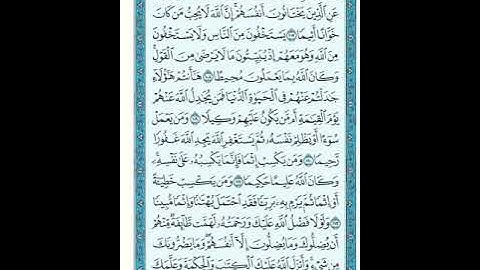 عَنِ ٱلَّذِينَ يَخْتَانُونَ أَنفُسَهُمْ إِنَّ ٱللَّهَ لَا يُحِبُّ مَن كَانَ
خَوَّانًا أَثِيمًا ١٠٧ يَسْتَخْفُونَ مِنَ ٱلنَّاسِ وَلَا يَسْتَخْفُونَ
مِنَ ٱللَّهِ وَهُوَ مَعَهُمْ إِذْ يُبَيِّتُونَ مَا لَا يَرْضَىٰ مِنَ ٱلْقَوْلِ
وَكَانَ ٱللَّهُ بِمَا يَعْمَلُونَ مُحِيطًا ١٠٨ هَٰٓأَنتُمْ هَٰٓؤُلَآءِ
جَٰدَلْتُمْ عَنْهُمْ فِى ٱلْحَيَوٰةِ ٱلدُّنْيَا فَمَن يُجَٰدِلُ ٱللَّهَ عَنْهُمْ
يَوْمَ ٱلْقِيَٰمَةِ أَم مَّن يَكُونُ عَلَيْهِمْ وَكِيلًا ١٠٩ وَمَن يَعْمَلْ
سُوٓءًا أَوْ يَظْلِمْ نَفْسَهُۥ ثُمَّ يَسْتَغْفِرِ ٱللَّهَ يَجِدِ ٱللَّهَ غَفُورًا
رَّحِيمًا ١١٠ وَمَن يَكْسِبْ إِثْمًا فَإِنَّمَا يَكْسِبُهُۥ عَلَىٰ نَفْسِهِۦ
وَكَانَ ٱللَّهُ عَلِيمًا حَكِيمًا ١١١ وَمَن يَكْسِبْ خَطِيٓـَٔةً
أَوْ إِثْمًا ثُمَّ يَرْمِ بِهِۦ بَرِيٓـًٔا فَقَدِ ٱحْتَمَلَ بُهْتَٰنًا وَإِثْمًا مُّبِينًا
١١٢ وَلَوْلَا فَضْلُ ٱللَّهِ عَلَيْكَ وَرَحْمَتُهُۥ لَهَمَّت طَّآئِفَةٌ مِّنْهُمْ
أَن يُضِلُّوكَ وَمَا يُضِلُّونَ إِلَّآ أَنفُسَهُمْ وَمَا يَضُرُّونَكَ
مِن شَىْءٍ وَأَنزَلَ ٱللَّهُ عَلَيْكَ ٱلْكِتَٰبَ وَٱلْحِكْمَةَ وَعَلَّمَكَ